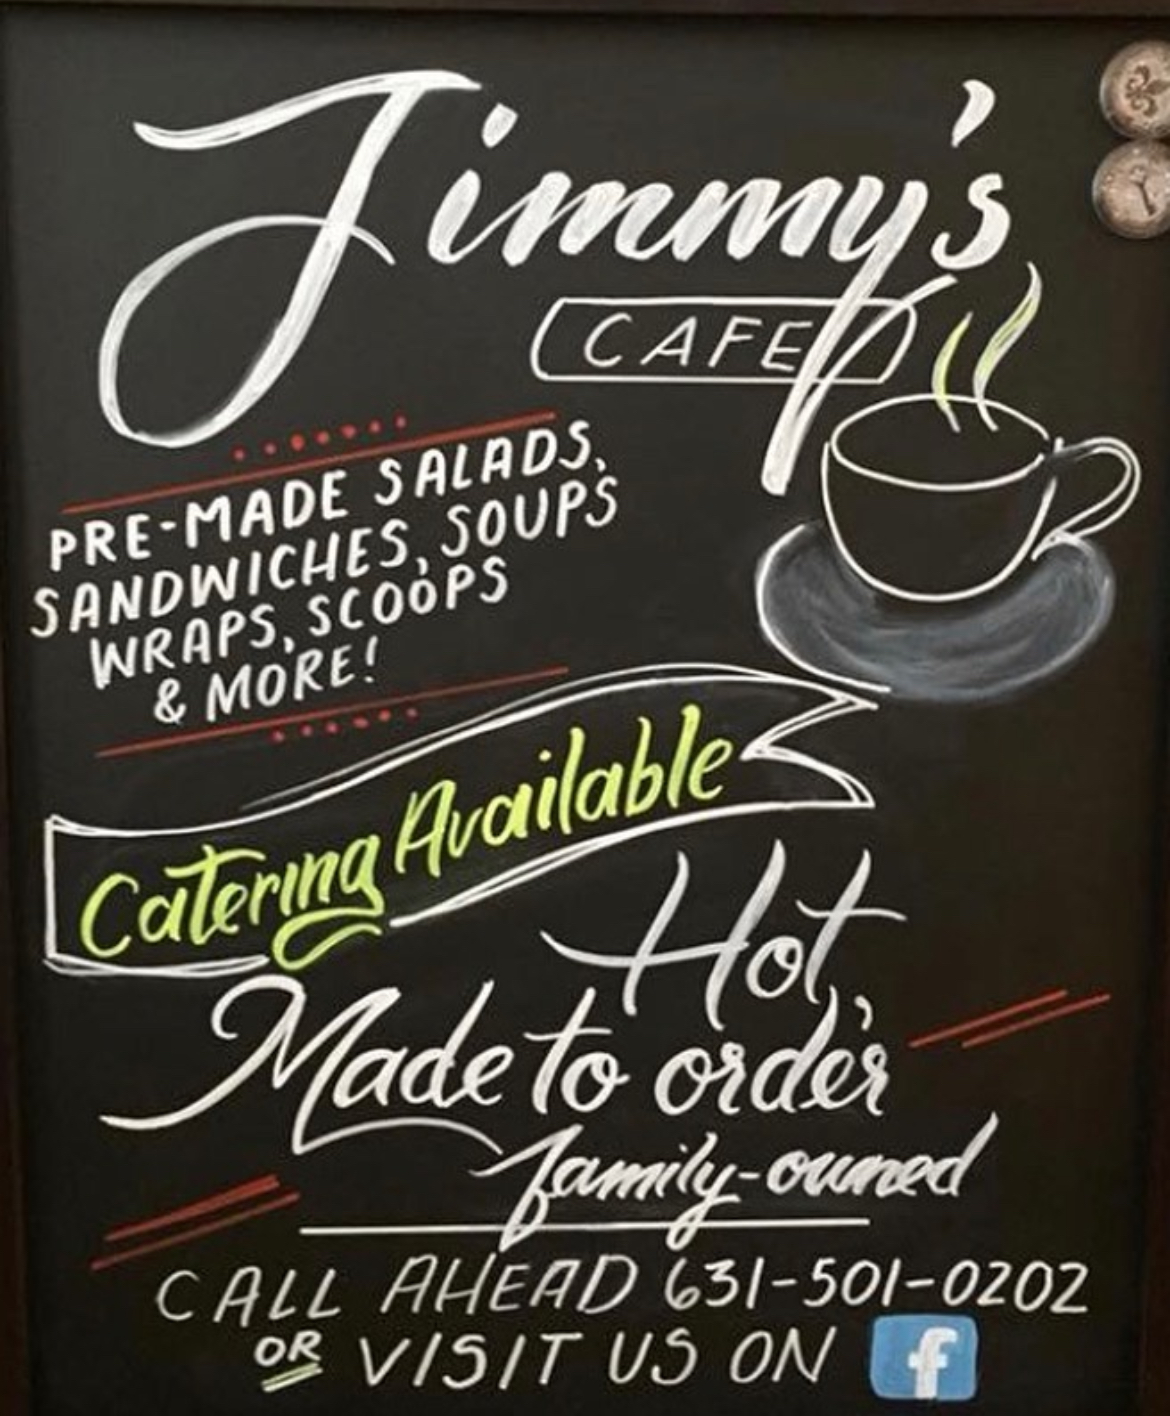 Jimmy's
CAFE
PRE-MADE SALADS,
SANDWICHES, SOUPS
WRAPS, SCOOPS
& MORE!
Catering Available
Hot,
Made to order
family-owned
CALL AHEAD 631-501-0202
OR VISIT US ON f